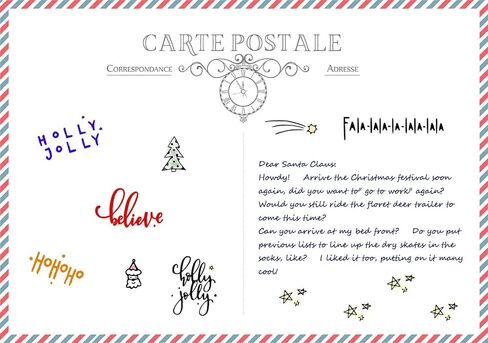 CARTE POSTALE
CORRESPONDANCE
ADRESSE
HOLLY
JOLLY
believe
HOHOHO
holly
jolly
FA-LA-LA-LA-LA-LA
Dear Santa Claus:
Howdy! Arrive the Christmas festival soon
again, did you want to" go to work" again?
Would you still ride the floret deer trailer to
come this time?
Can you arrive at my bed front? Do you put
previous lists to line up the dry skates in the
socks, like? I liked it too, putting on it many
cool!